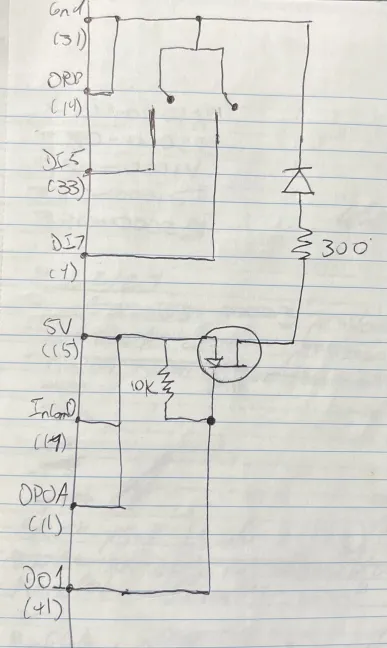 Gnd
(31)
ORP
(14)
DI5
(33)
DI7
(4)
300
5V
(15)
10K
DPOA
(11)
DO1
(41)